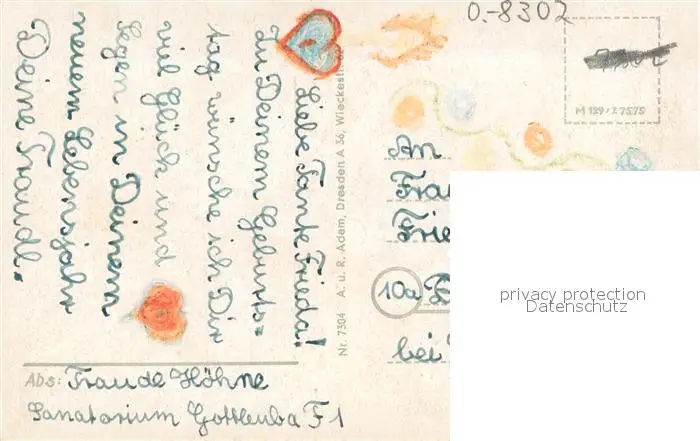 O.-8302
M 129/2 7575
Liebe Tante Frieda!
Zu Deinem Geburts=
tag wünsche ich Dir
viel Glück und
Segen in Deinem
neuem Lebensjahr
Deine Traudl.
Nr. 7304 A. u. R. Adam, Dresden A 36, Wieckestr. 62
An
Frau
Frie
10a
bei
privacy protection
Datenschutz
Abs: Traude Höhne
Sanatorium Gottleuba F1